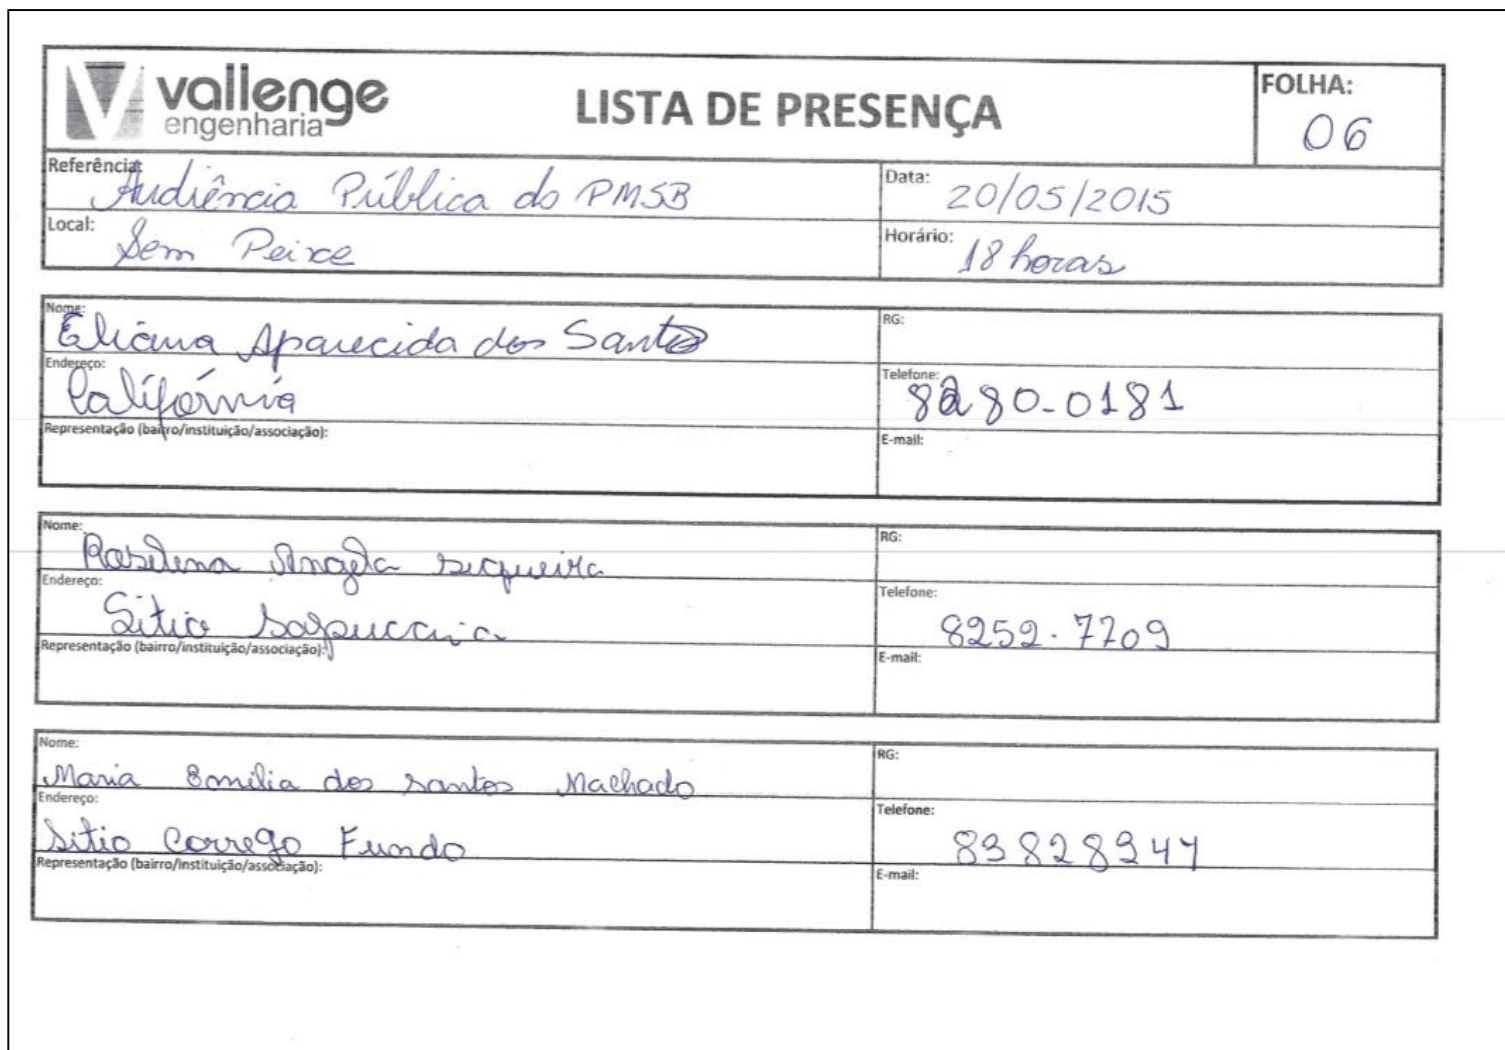 vallenge
engenharia
LISTA DE PRESENÇA
FOLHA:
06
Referência: Audiência Pública do PMSB
Data: 20/05/2015
Local: Sem Peixe
Horário: 18 horas
Nome: Eliana Aparecida dos Santos
RG:
Endereço: Califórnia
Telefone: 8280-0181
Representação (bairro/instituição/associação):
E-mail:
Nome: Angela siqueira
RG:
Endereço: Sitio Sapucaia
Telefone: 8252-7209
Representação (bairro/instituição/associação):
E-mail:
Nome: Maria Emilia dos santos Machado
RG:
Endereço: Sitio Corrego Fundo
Telefone:
Representação (bairro/instituição/associação):
E-mail: